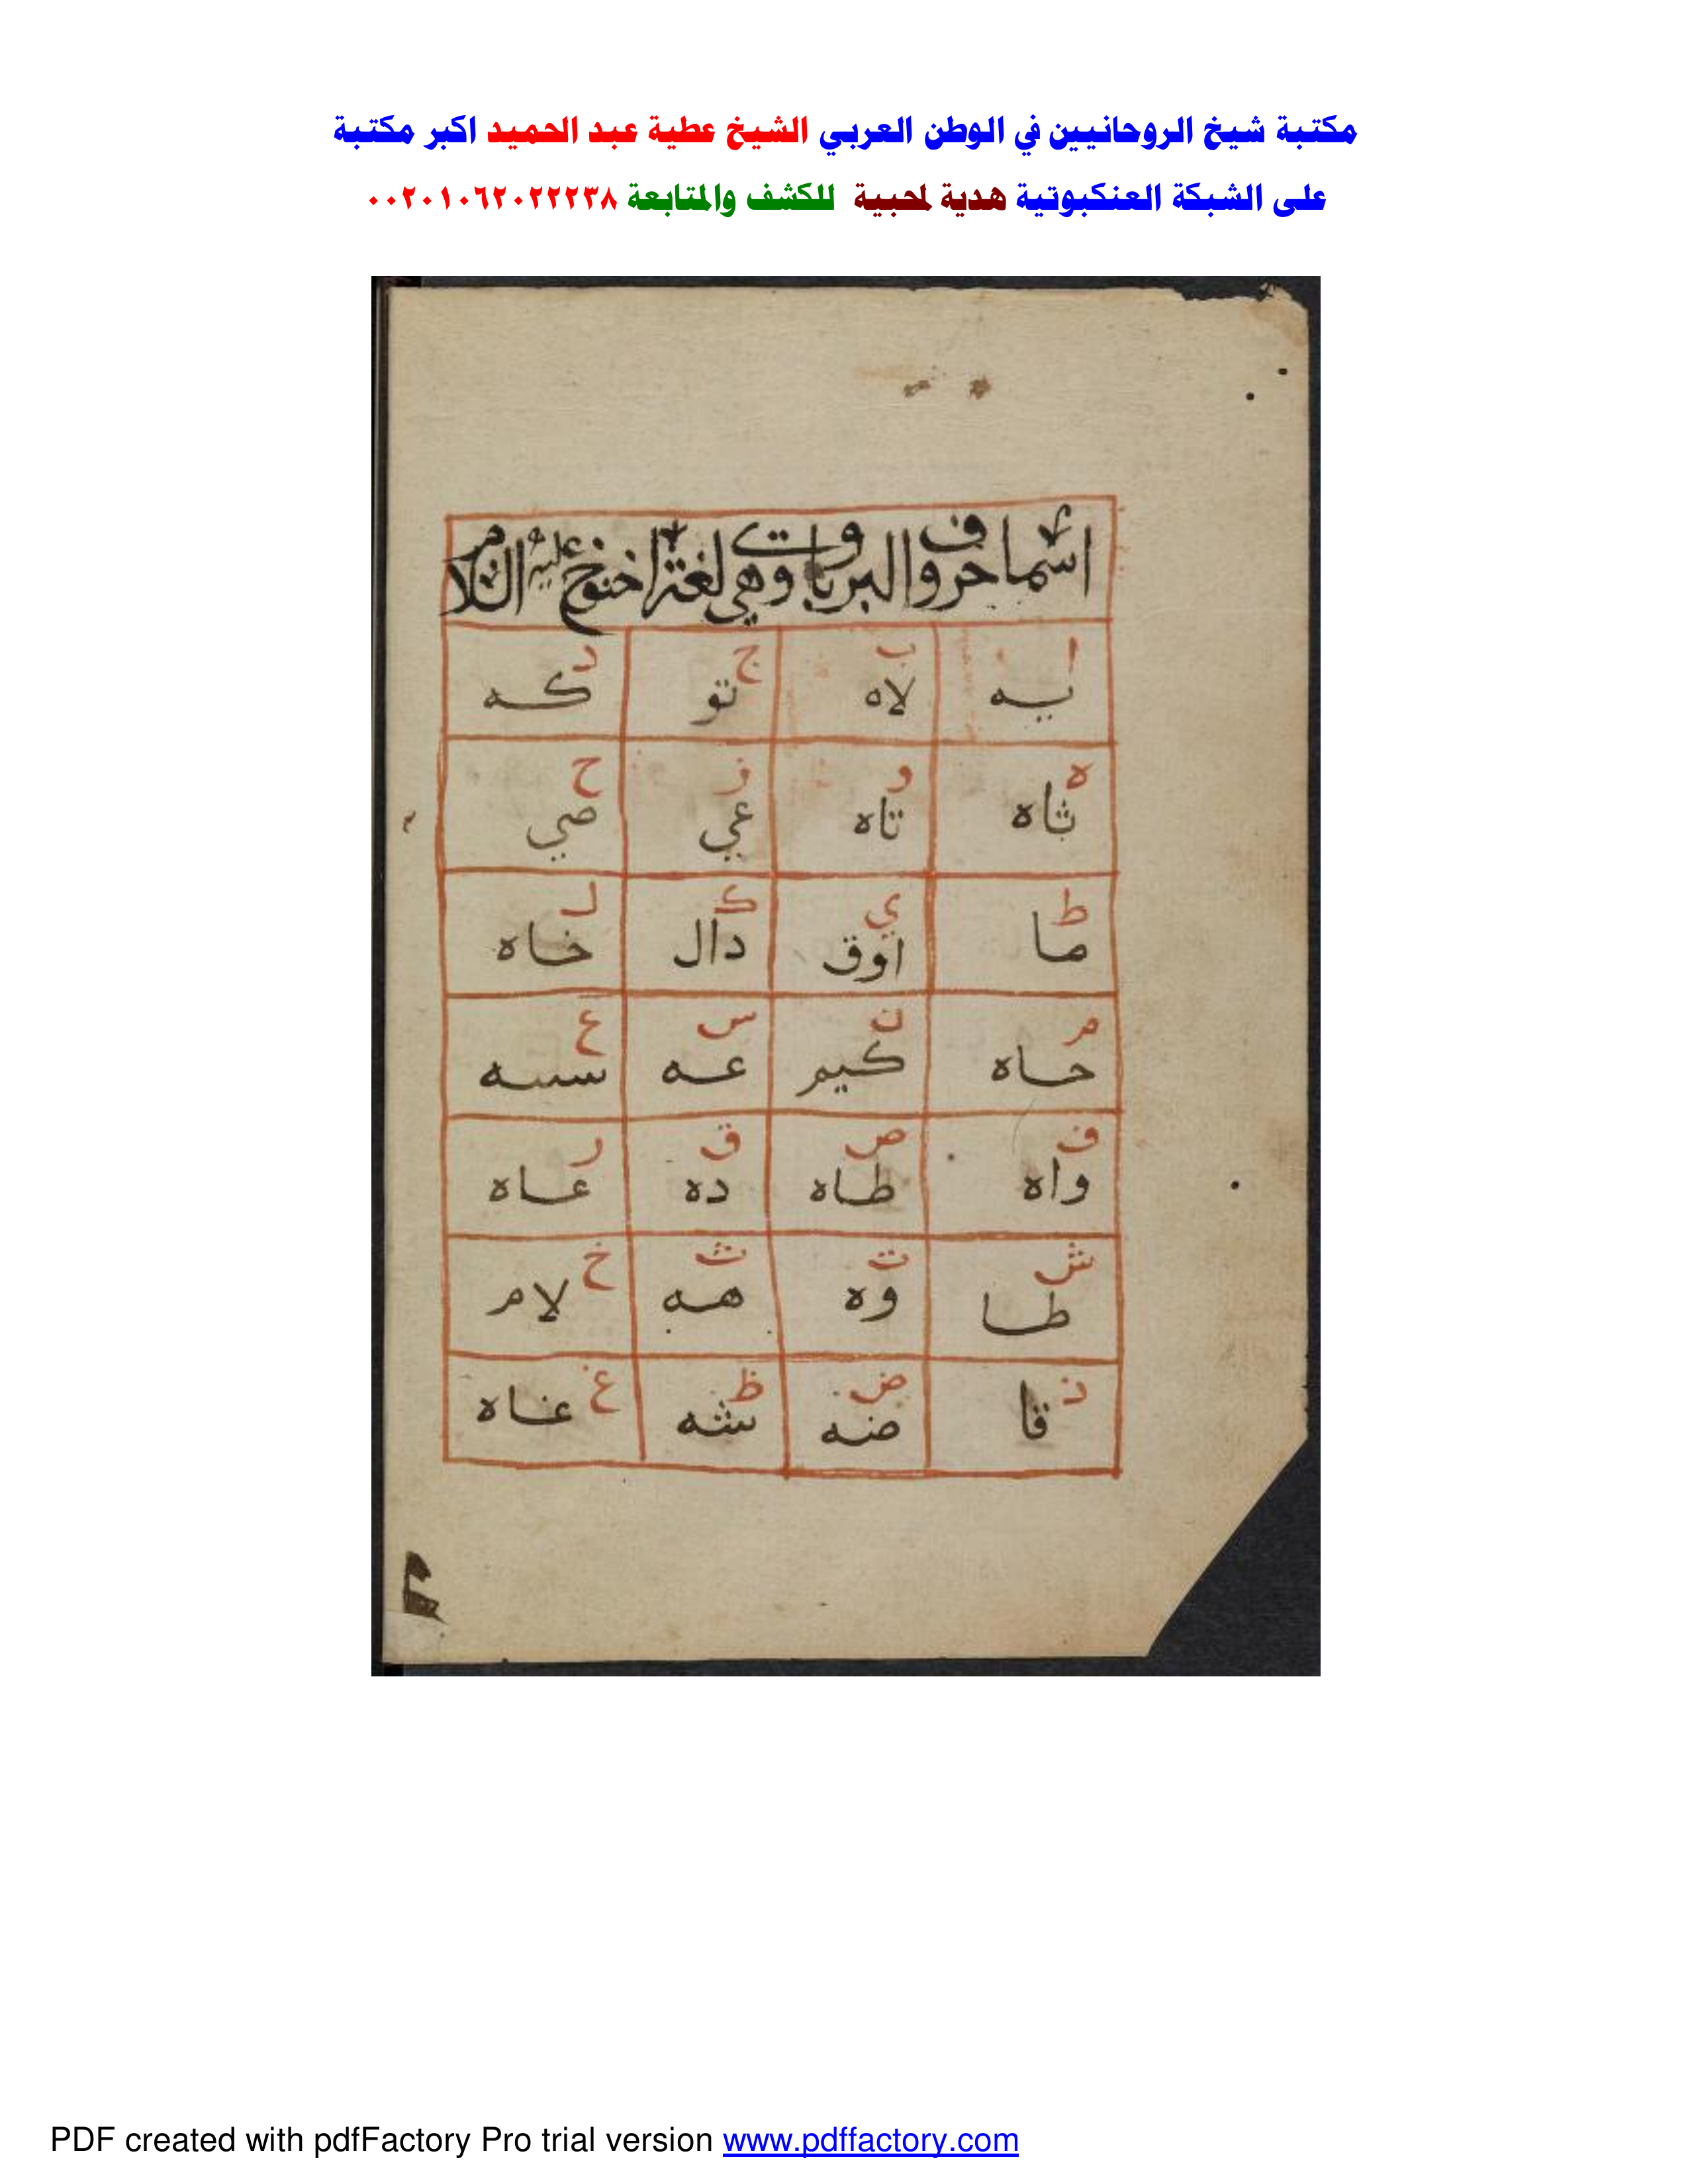 مكتبة شيخ الروحانيين في الوطن العربي الشيخ عطية عبد الحميد اكبر مكتبة
على الشبكة العنكبوتية هدية لمحبية للكشف والمتابعة ٠٠٢٠١٠٦٢٠٢٢٢٣٨
اسما حروف البرباوت وهي لغة اخنوخ عليه السلام
ا ب ج د
يه لاه تو كه
ه و ز ح
ثاه تاه عي صي
ط ي ك ل
ما اوق دال خاه
م ن س ع
حاه كيم عه سسه
ف ص ق ر
واه طاه ده عاه
ش ت ث خ
طا وه هه لام
ذ ض ظ غ
قا ضه شه غاه
PDF created with pdfFactory Pro trial version www.pdffactory.com